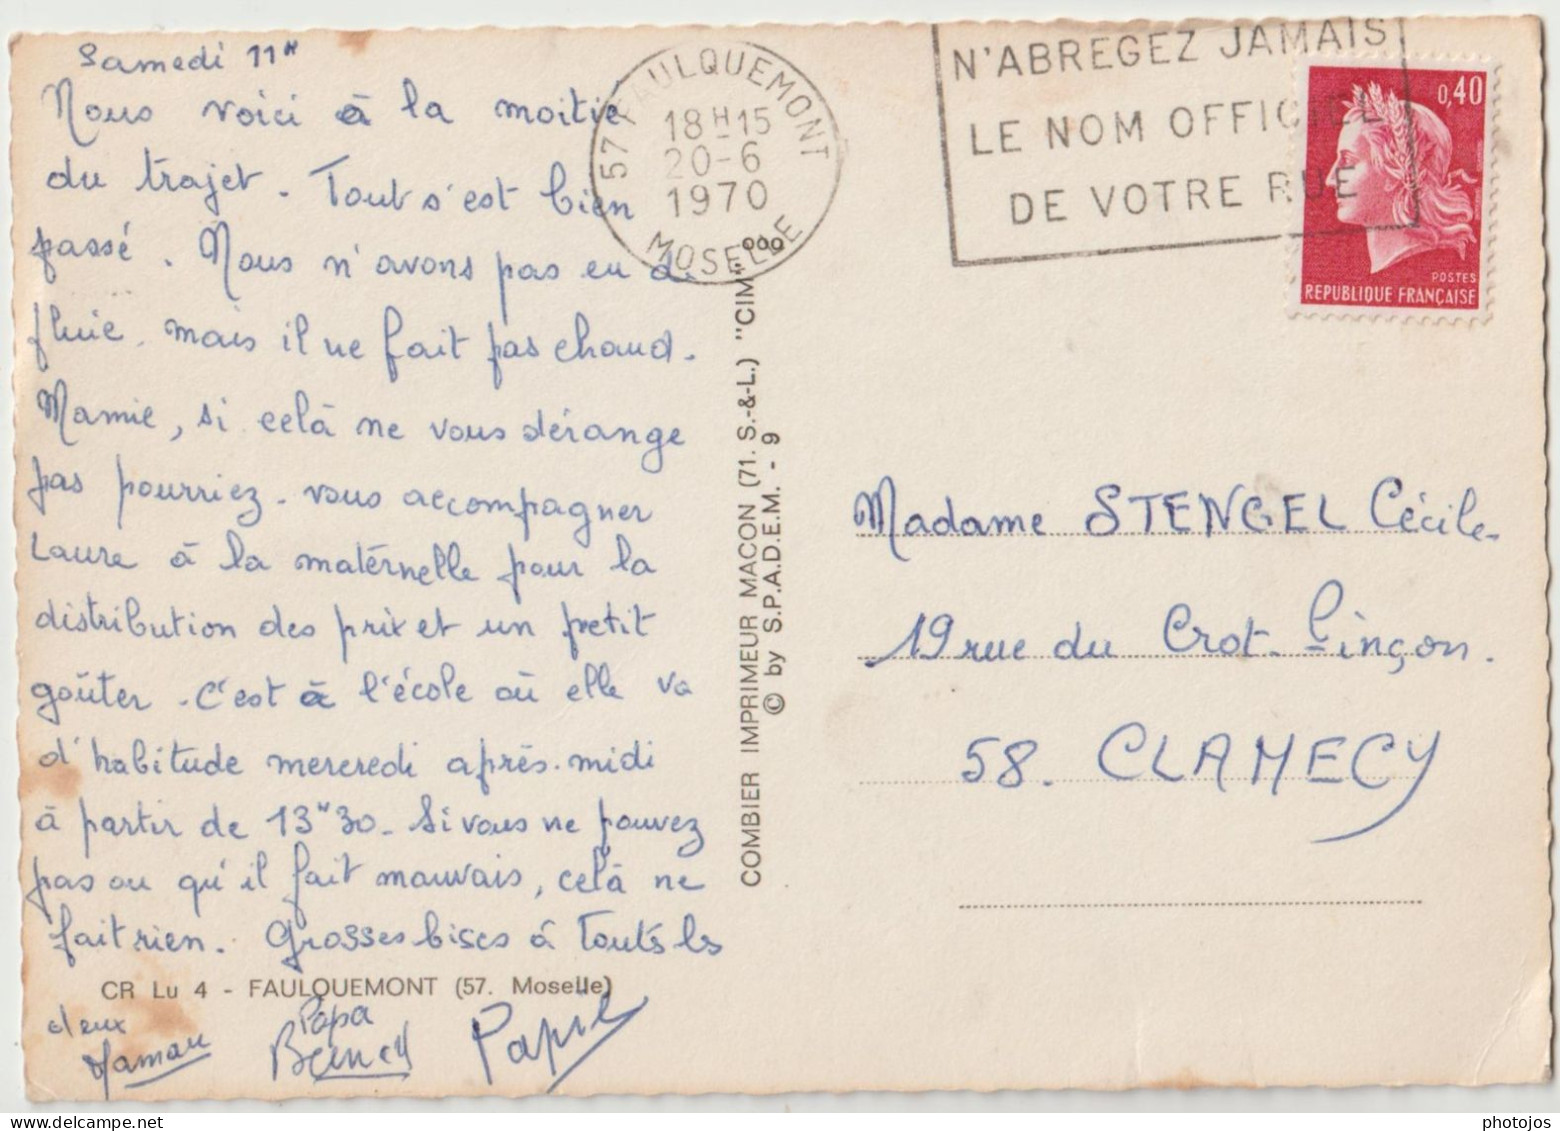 Samedi 11H
Nous voici à la moitié
du trajet. Tout s'est bien
passé. Nous n'avons pas eu d
pluie. mais il ne fait pas chaud.
Mamie, si celà ne vous dérange
pas pourriez-vous accompagner
Laure à la maternelle pour la
distribution des prix et un petit
goûter. C'est à l'école où elle va
d'habitude mercredi après-midi
à partir de 13H30. Si vous ne pouvez
pas ou qu'il fait mauvais, celà ne
fait rien. Grosses bises à Toutes les
CR Lu 4 - FAULQUEMONT (57. Moselle)
deux
Maman Papa Papie
COMBIER IMPRIMEUR MACON (71. S.-&-L.) "CIM"
© by S.P.A.D.E.M. - 9
57 FAULQUEMONT
18H15
20-6
1970
MOSELLE
N'ABREGEZ JAMAIS
LE NOM OFFICIEL
DE VOTRE RUE
0,40
POSTES
REPUBLIQUE FRANÇAISE
Madame STENGEL Cécile-
19 rue du Crot-Pinçon.
58. CLAMECY
photojos